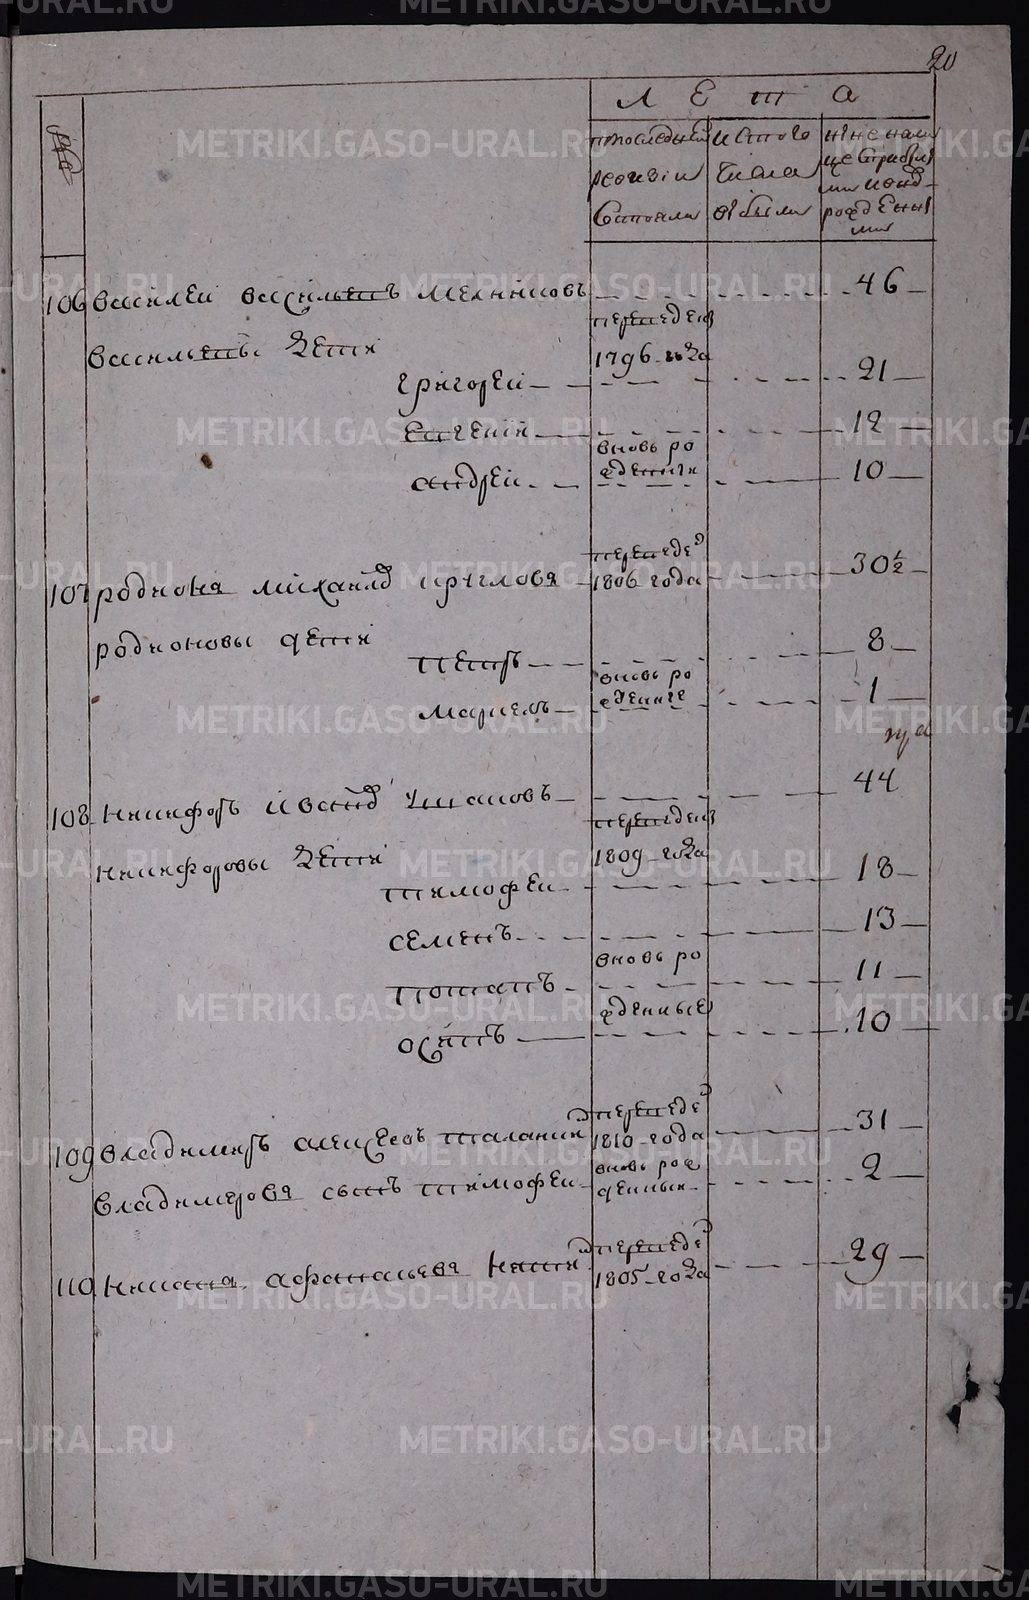 20
Л Е Т А
№
по последней ревизии состояло
ис того числа выбыло
ныне налицо с прибылыми и новорожденными
106 василеи васильевъ мелниковъ 46
васильевы дети переведен 1796 года
григореи 21
евгении 12
андреи вновь рожденныя 10
107 родиона михаилов круглова переведе 1806 года 30 1/2
родионовы дети
петръ 8
маркелъ вновь рожденые 1
108 никифоръ иванов ушаковъ 44
никифоровы дети переведен 1809 года
тимофеи 18
семенъ 13
потапъ вновь рожденные 11
осипъ 10
109 владимеръ алексеевъ паланин переведе 1810 года 31
владимерова сынъ тимофеи вновь рожденныи 2
110 афанасьева переведе 1805 года 29
METRIKI.GASO-URAL.RU